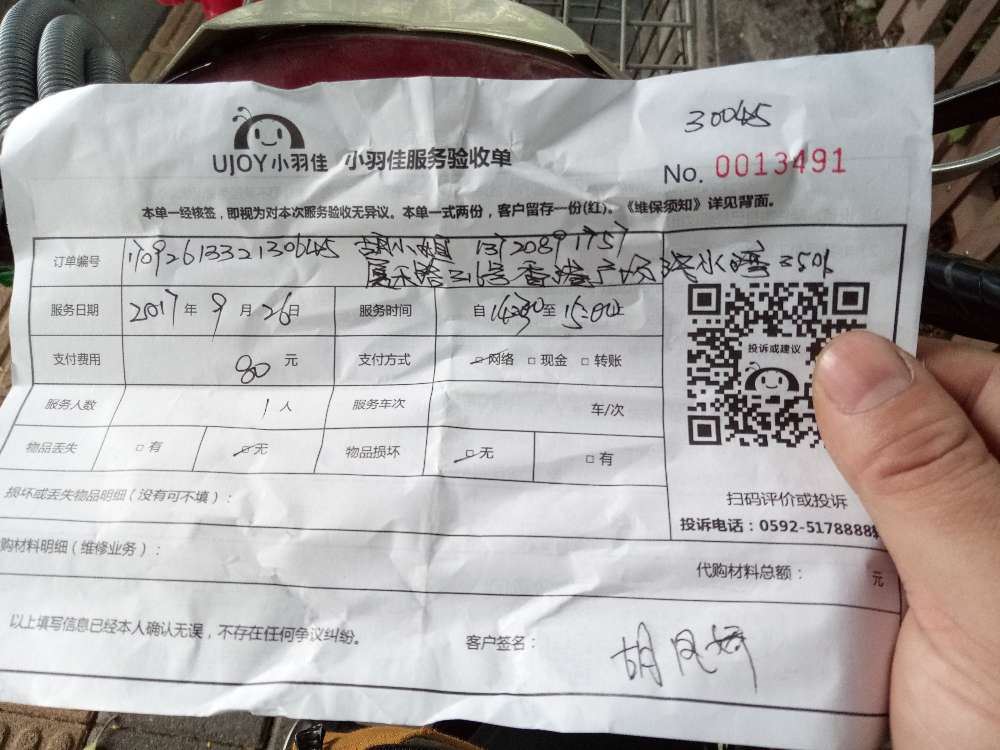 30045
UJOY小羽佳 小羽佳服务验收单
No. 0013491
本单一经核签，即视为对本次服务验收无异议。本单一式两份，客户留存一份(红)。《维保须知》详见背面。
订单编号 1709261332130645 胡小姐 13720891757
31号香 广场 水 2501
服务日期 2017年9月26日 服务时间 自14:30至15:00止
支付费用 80元 支付方式 □网络 □现金 □转账
投诉或建议
服务人数 1人 服务车次 车/次
物品丢失 □有 □无 物品损坏 □无 □有
损坏或丢失物品明细（没有可不填）：
扫码评价或投诉
投诉电话：0592-5178888
购材料明细（维修业务）：
代购材料总额： 元
以上填写信息已经本人确认无误，不存在任何争议纠纷。
客户签名： 胡凤娇